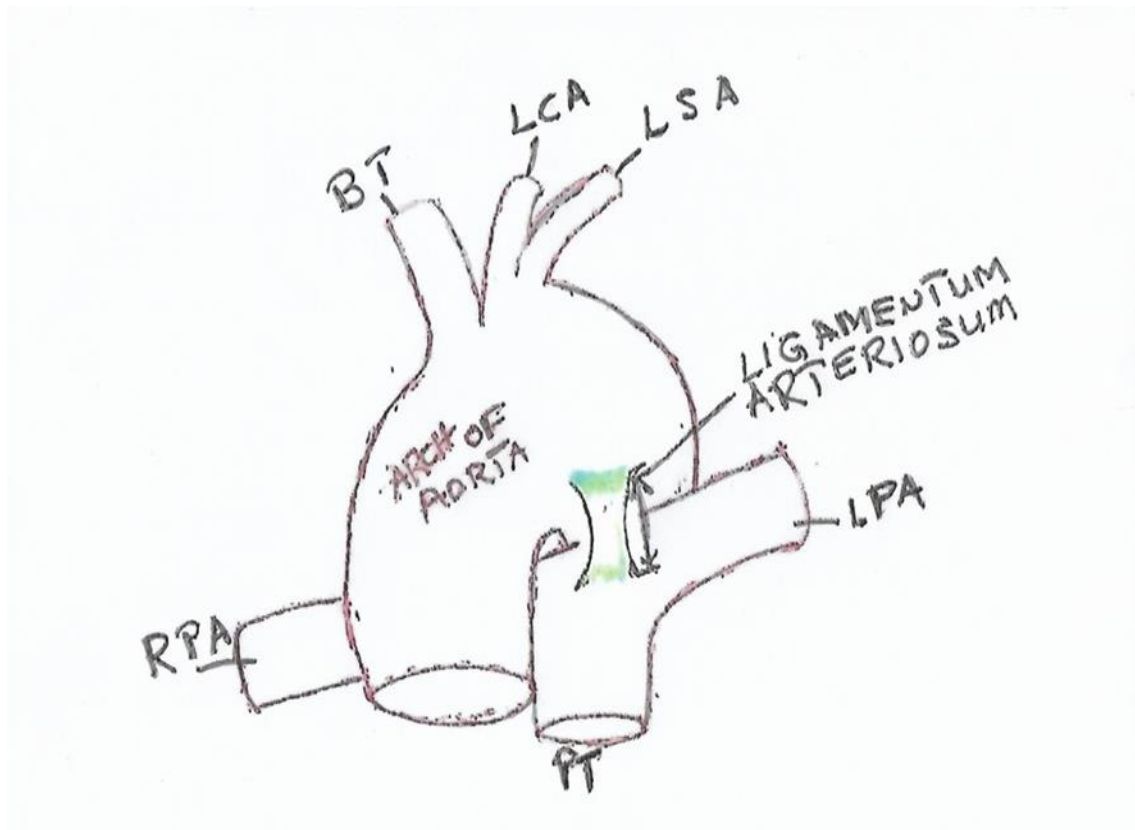 LCA
LSA
BT
LIGAMENTUM
ARTERIOSUM
ARCH OF
AORTA
LPA
RPA
PT